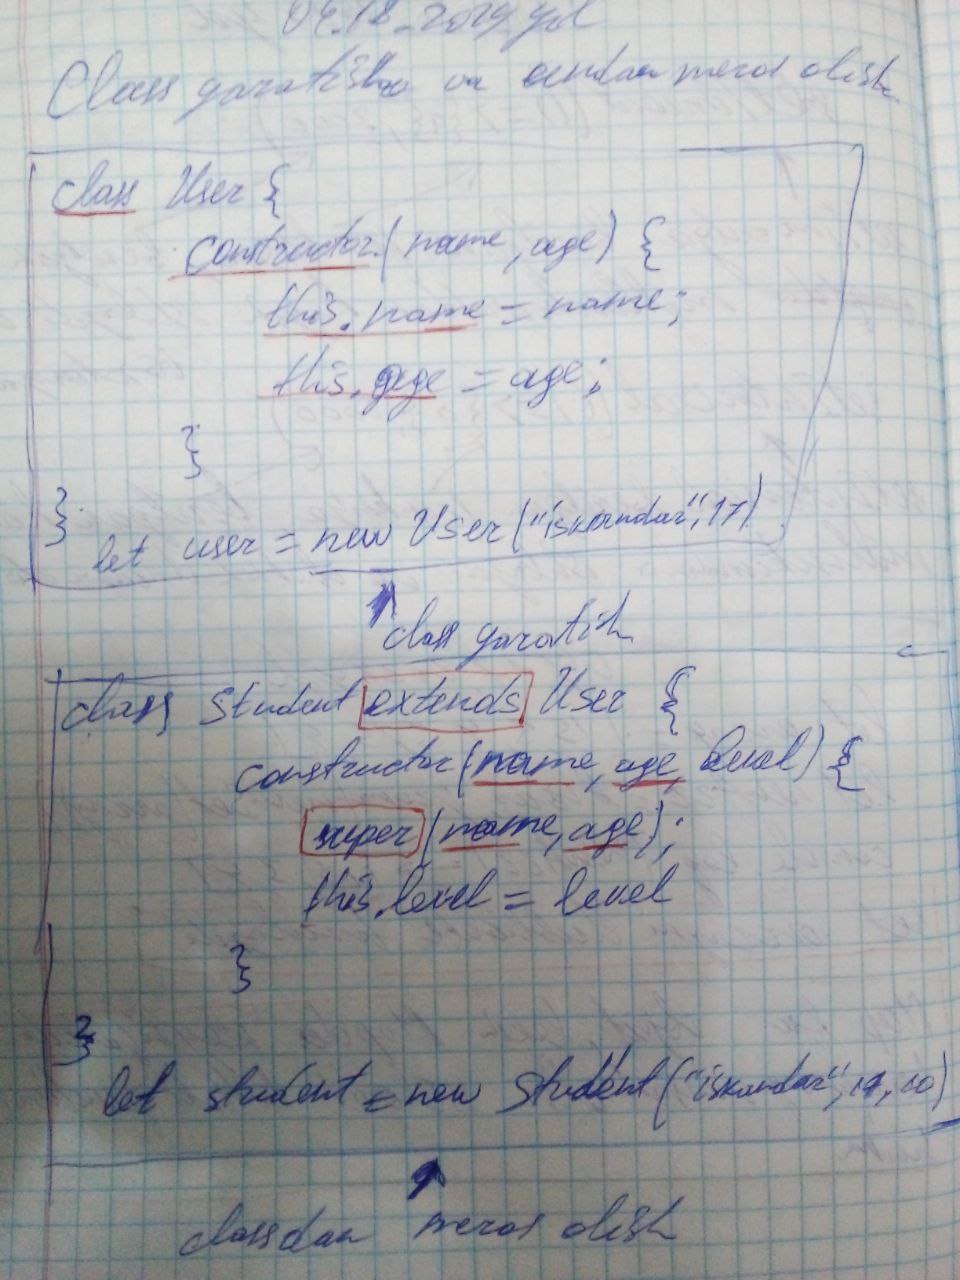 04.12.2019 yil
Class yaratish va undan meros olish
class User {
constructor(name, age) {
this.name = name;
this.age = age;
}
}
let user = new User("iskandar", 17)
class yaratish
class Student extends User {
constructor(name, age, level) {
super(name, age);
this.level = level
}
}
let student = new Student("iskandar", 17, 10)
classdan meros olish